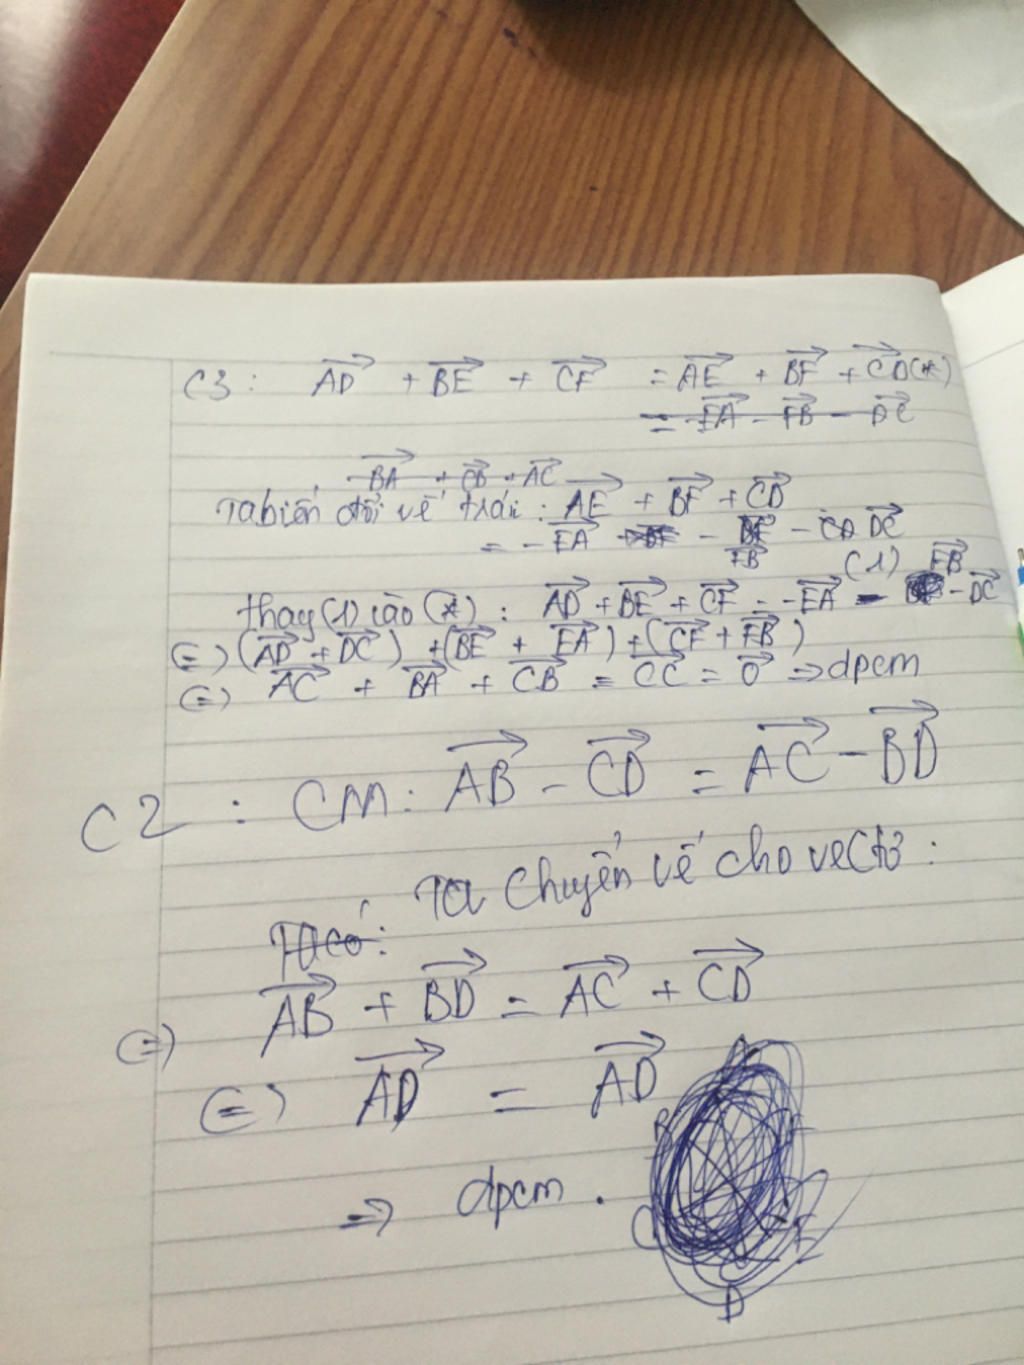 C3: AD + BE + CF = AE + BF + CD (*)
= -EA - FB - DC
BA + CB + AC
Ta biến đổi vế trái: AE + BF + CD
= -EA - FB - DC (1)
thay (1) vào (*): AD + BE + CF = -EA - FB - DC
(=) (AD + DC) + (BE + EA) + (CF + FB)
(=) AC + BA + CB = CC = 0 => dpcm
C2: CM: AB - CD = AC - BD
Ta chuyển vế cho vectơ:
Ta có:
(=) AB + BD = AC + CD
(=) AD = AD
=> dpcm.
A
B
C
E
D